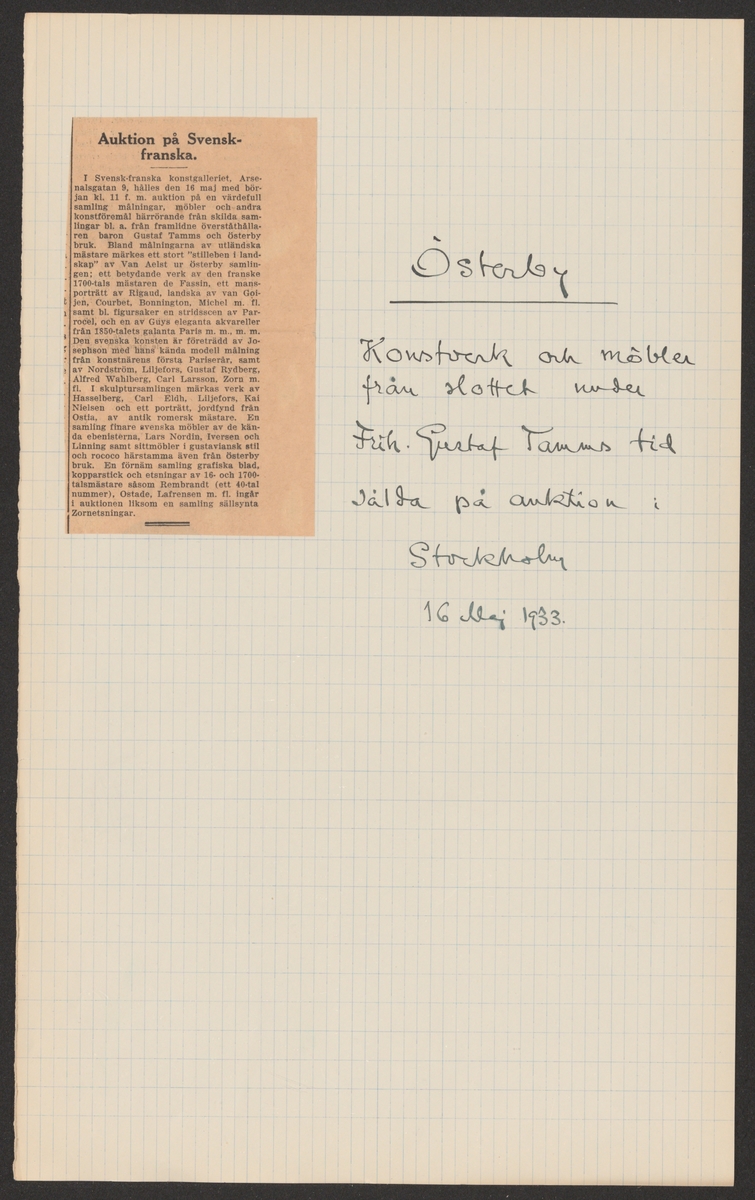 Auktion på Svensk-
franska.
I Svensk-franska konstgalleriet, Arse-
nalsgatan 9, hålles den 16 maj med bör-
jan kl. 11 f. m. auktion på en värdefull
samling målningar, möbler och andra
konstföremål härrörande från skilda sam-
lingar bl. a. från framlidne överståthålla-
ren baron Gustaf Tamms och Österby
bruk. Bland målningarna av utländska
mästare märkes ett stort "stilleben i land-
skap" av Van Aelst ur Österby samlin-
gen; ett betydande verk av den franske
1700-tals mästaren de Fassin, ett mans-
porträtt av Rigaud, landska av van Goi-
jen, Courbet, Bonnington, Michel m. fl.
samt bl. figursaker en stridsscen av Par-
rocel, och en av Guys eleganta akvareller
från 1850-talets galanta Paris m. m., m. m.
Den svenska konsten är företrädd av Jo-
sephson med hans kända modell målning
från konstnärens första Pariserår, samt
av Nordström, Liljefors, Gustaf Rydberg,
Alfred Wahlberg, Carl Larsson, Zorn m.
fl. I skulptursamlingen märkas verk av
Hasselberg, Carl Eldh, Liljefors, Kai
Nielsen och ett porträtt, jordfynd från
Ostia, av antik romersk mästare. En
samling finare svenska möbler av de kän-
da ebenisterna, Lars Nordin, Iversen och
Linning samt sittmöbler i gustaviansk stil
och rococo härstamma även från Österby
bruk. En förnäm samling grafiska blad,
kopparstick och etsningar av 16- och 1700-
talsmästare såsom Rembrandt (ett 40-tal
nummer), Ostade, Lafrensen m. fl. ingår
i auktionen liksom en samling sällsynta
Zornetsningar.
Österby
Konstverk och möbler
från slottet under
Frih. Gustaf Tamms tid
sålda på auktion i
Stockholm
16 Maj 1933.